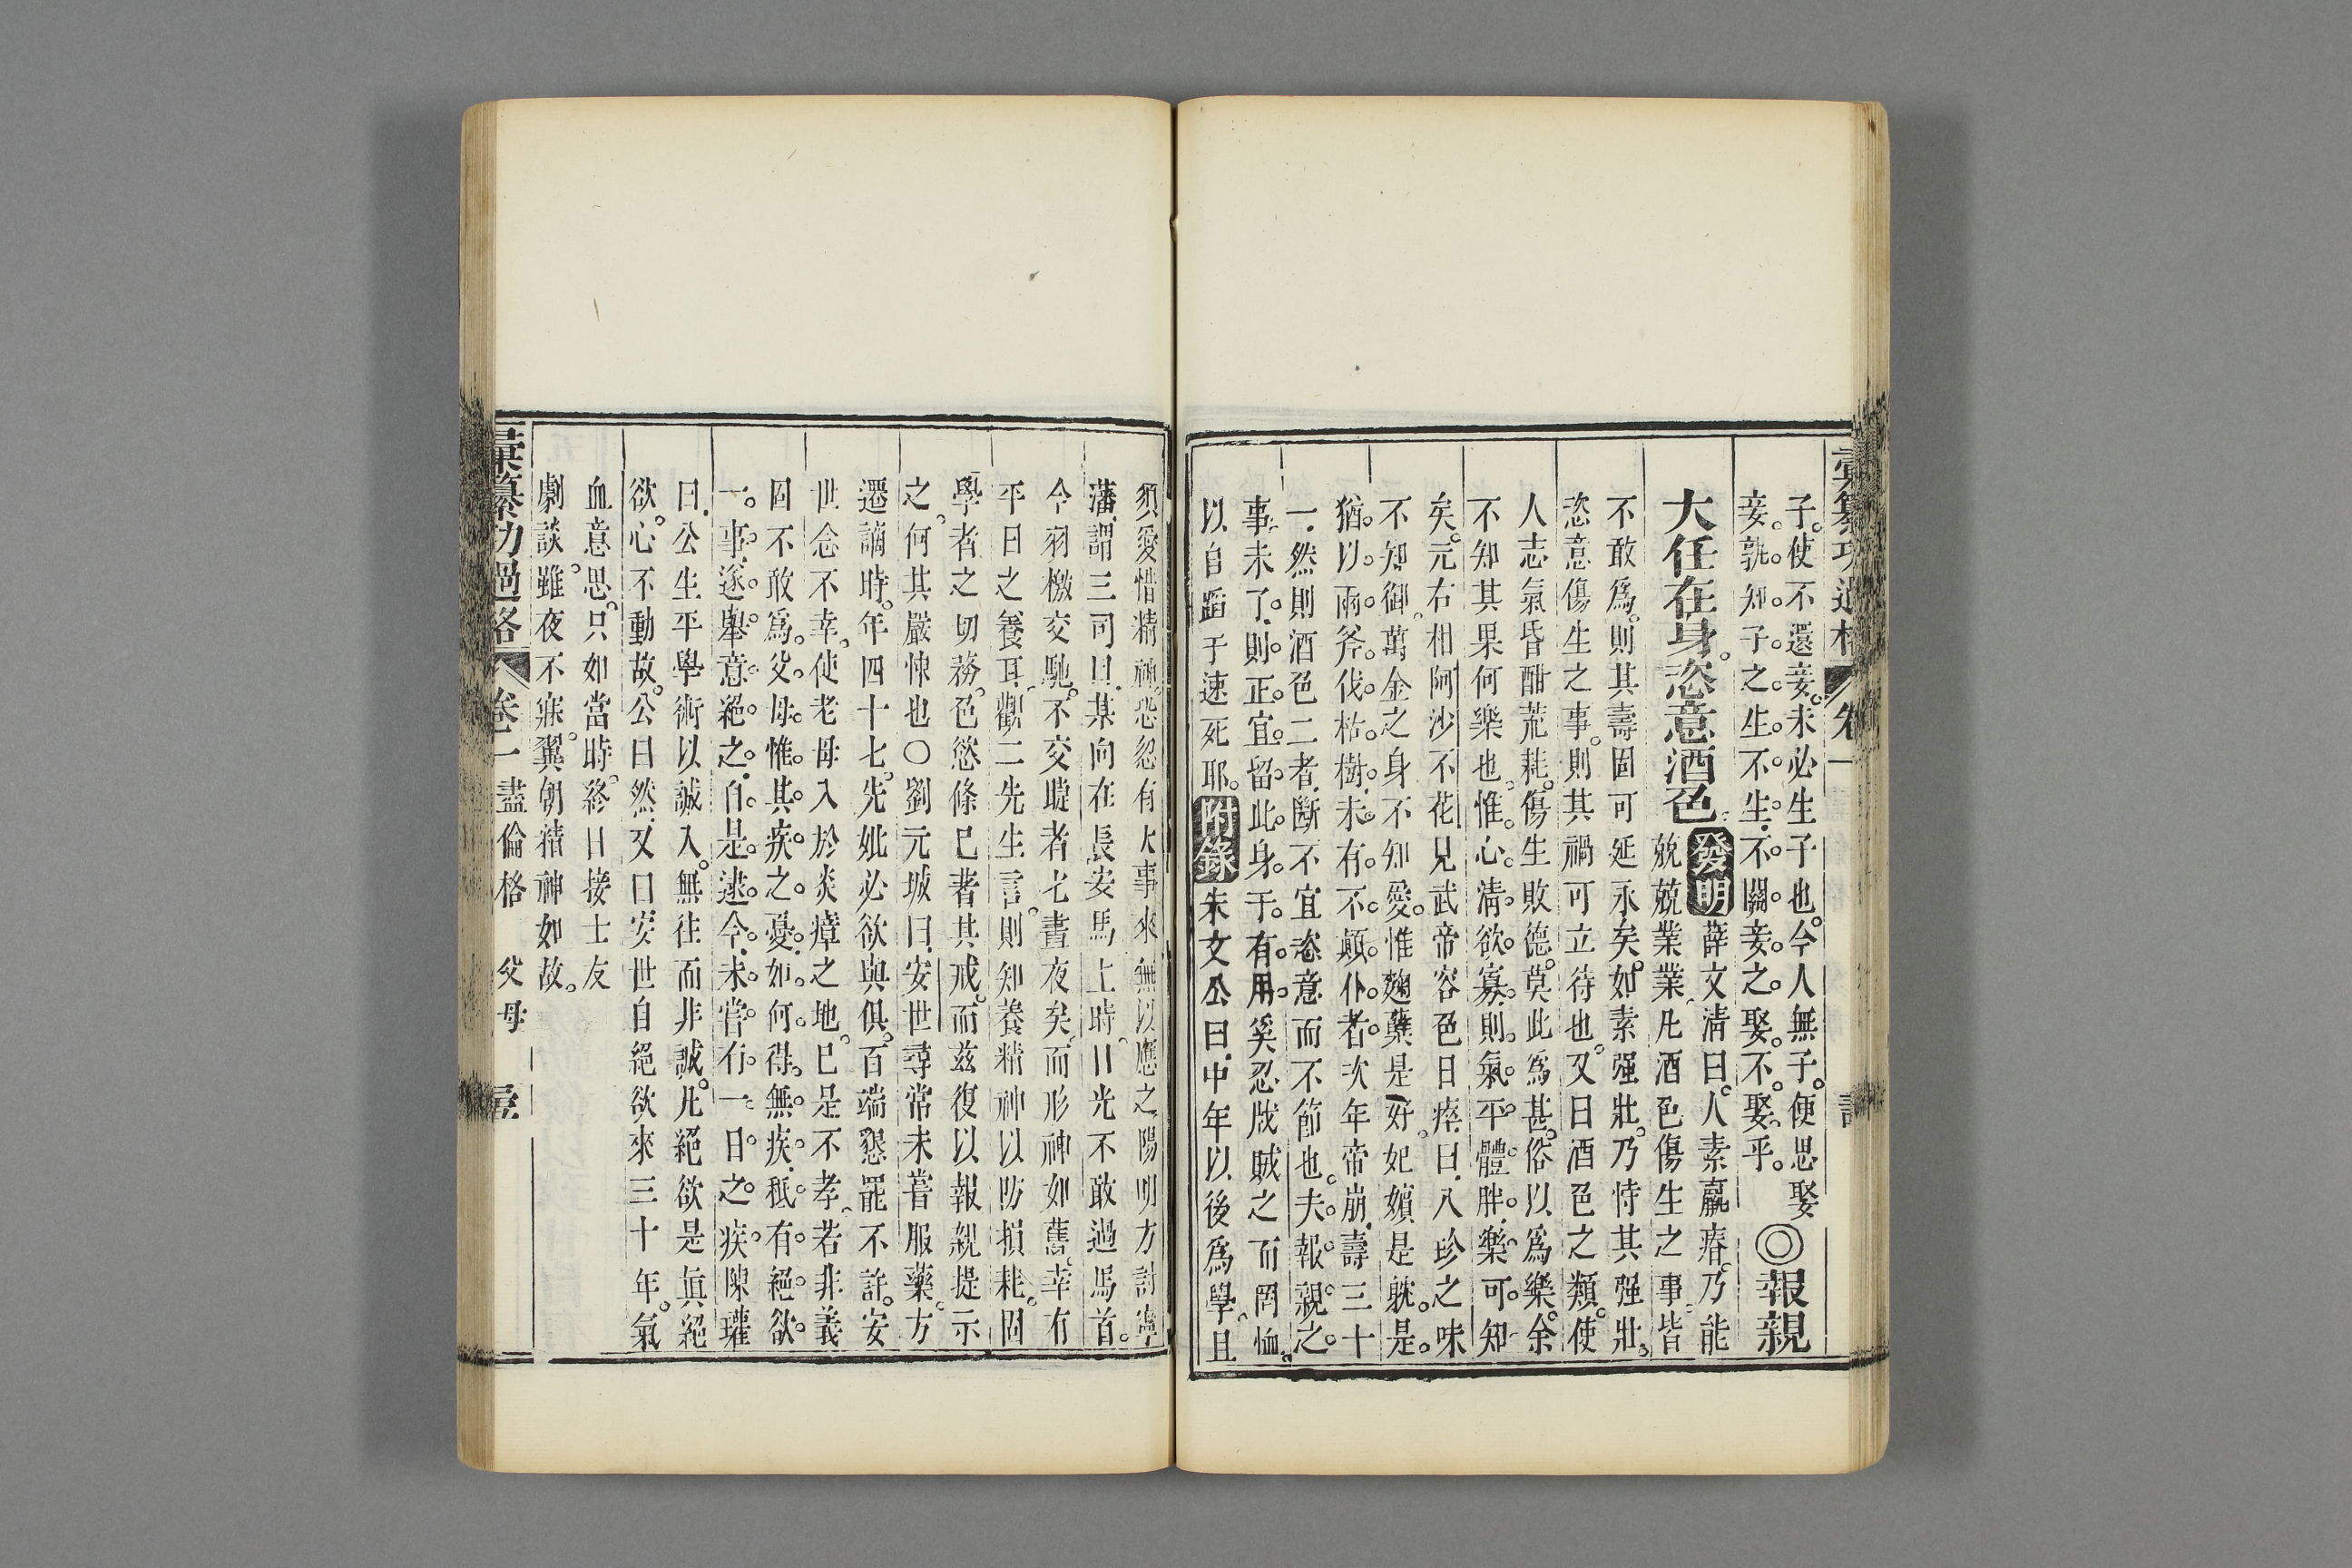 彙纂功過格 卷一
子。使不還妾。未必生子也。今人無子。便思娶
妾。孰知子之生不生。不關妾之娶不娶乎。◎報親
大任在身。恣意酒色。發明薛文清曰。人素羸瘠。乃能
兢兢業業。凡酒色傷生之事。皆
不敢爲。則其壽固可延永矣。如素强壯。乃恃其强壯。
恣意傷生之事。則其禍可立待也。又曰酒色之類。使
人志氣昏酣荒耗。傷生敗德。莫此爲甚。俗以爲樂。余
不知其果何樂也。惟心清欲寡。則氣平體胖。樂可知
矣。元右相阿沙不花見武帝容色日瘁曰。八珍之味
不知御。萬金之身不知愛。惟麴蘖是好。妃嬪是躭。是
猶以兩斧伐枯樹。未有不顚仆者。次年帝崩。壽三十
一。然則酒色二者。斷不宜恣意而不節也。夫報親之
事未了。則正宜留此身于有用。奚忍戕賊之而罔恤。
以自蹈于速死耶。附錄朱文公曰。中年以後爲學。且
須愛惜精神。恐忽有大事來。無以應之。陽明方討寧
藩。謂三司曰。某向在長安馬上時。日光不敢過馬首。
今羽檄交馳。不交睫者七晝夜矣。而形神如舊。幸有
平日之養耳。觀二先生言。則知養精神以防損耗。固
學者之切務。色慾條已著其戒。而茲復以報親提示
之。何其嚴悚也○劉元城曰。安世尋常未嘗服藥。方
遷謫時。年四十七。先妣必欲與俱。百端懇罷不許。安
世念不幸。使老母入於炎瘴之地。已是不孝。若非義
固不敢爲。父母惟其疾之憂。如何得無疾。秪有絕欲
一事。遂舉意絕之。自是逮今。未嘗有一日之疾。陳瓘
曰。公生平學術以誠入。無往而非誠。凡絕欲是眞絕
欲。心不動故。公曰然。又曰安世自絕欲來三十年。氣
血意思。只如當時。終日接士友
劇談。雖夜不寐。翼朝精神如故。
彙纂功過格 卷一 盡倫格 父母